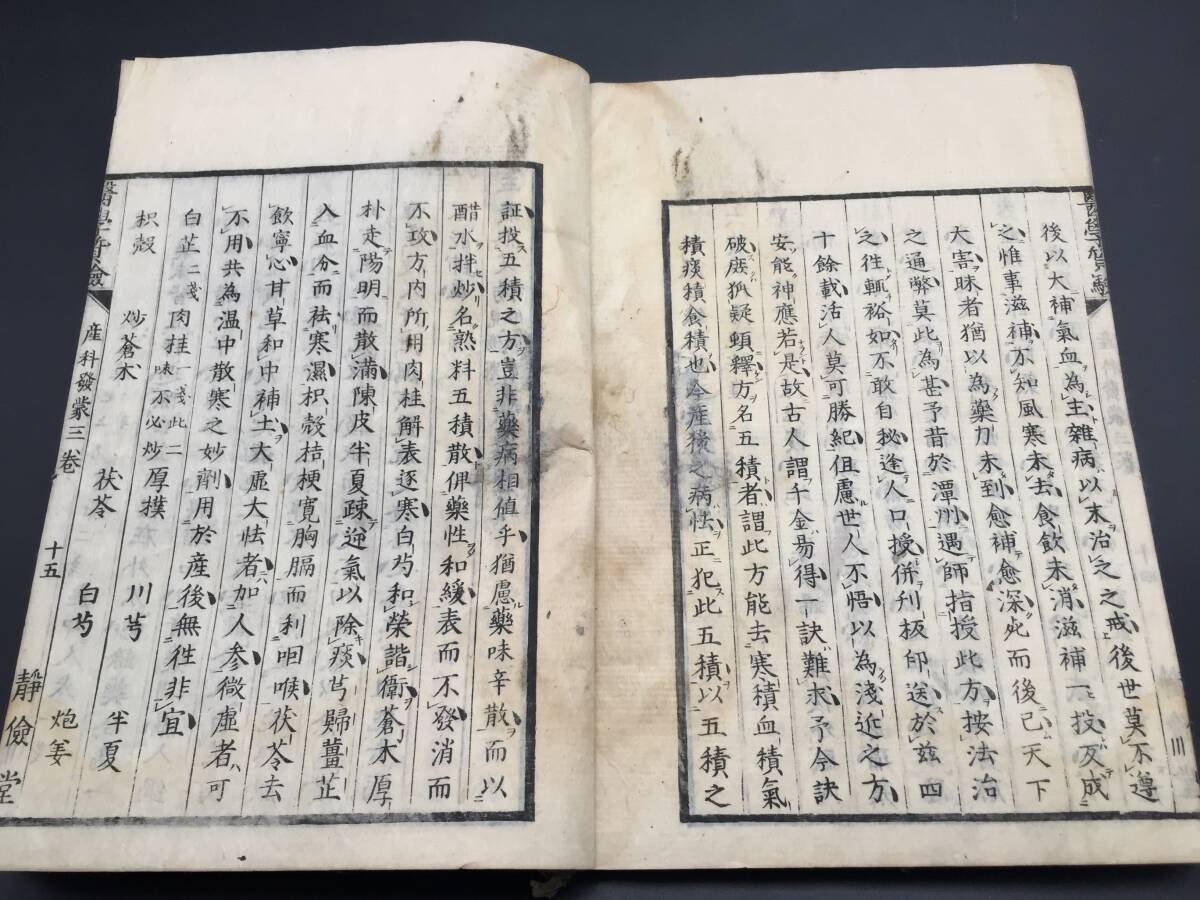 後以大補氣血為主雜病以末治之之戒後世莫不遵
之惟事滋補不知風寒未去食飲未消滋補一投反成
大害昧者猶以為藥力未到愈補愈深死而後已天下
之通弊莫此為甚予昔於潭州遇師指授此方按法治
之徃輒裕如不敢自秘逢人口授併刊板印送於兹四
十餘載活人莫可勝紀伹慮世人不悟以為淺近之方
安能神應若是故古人謂千金昜得一訣難求予今訣
破庶狐疑頓釋方名五積者謂此方能去寒積血積氣
積痰積食積也今産後之病怯正犯此五積以五積之
証投五積之方豈非藥病相值乎猶慮藥味辛散而以
醋水拌炒名熟料五積散俾藥性和緩表而不發消而
不攻方内所用肉桂解表逐寒白芍和榮諧衛蒼朮厚
朴走陽明而散滿陳皮半夏疎逆氣以除痰芎歸薑芷
入血分而祛寒濕枳殻桔梗寛胸膈而利咽喉茯苓去
飲寧心甘草和中補土大虚大怯者加人參微虚者可
不用共為温中散寒之妙劑用於産後無徃非宜
白芷二戔 肉挂一戔此二味不必炒 厚撲 川芎 半夏
枳殻 炒蒼朮 茯苓 白芍 炮姜
産科發蒙三卷 十五 靜儉堂